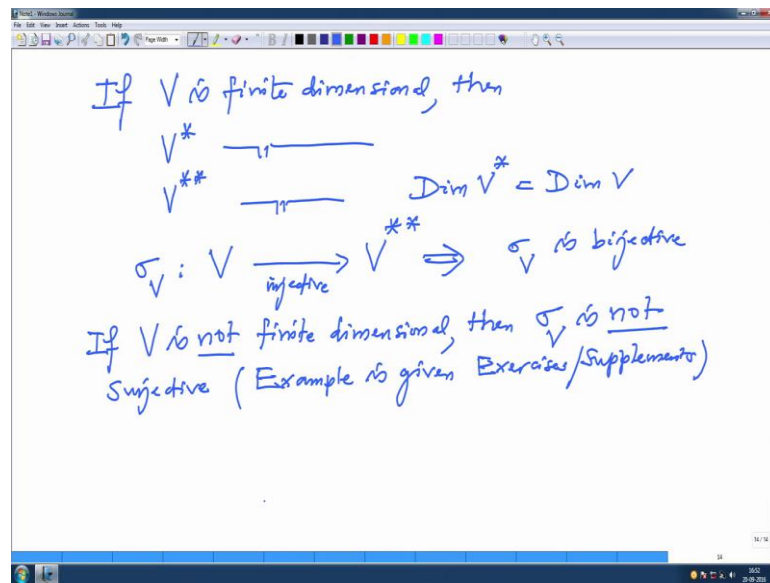 Note1 - Windows Journal
File Edit View Insert Actions Tools Help
Page Width
B I
If V is finite dimensional, then
V* —〃—
V** —〃— Dim V* = Dim V
σ_V : V ⟶ V** ⇒ σ_V is bijective
injective
If V is not finite dimensional, then σ_V is not
Surjective (Example is given Exercises/Supplements)
14 / 14
14
16:52
20-09-2016